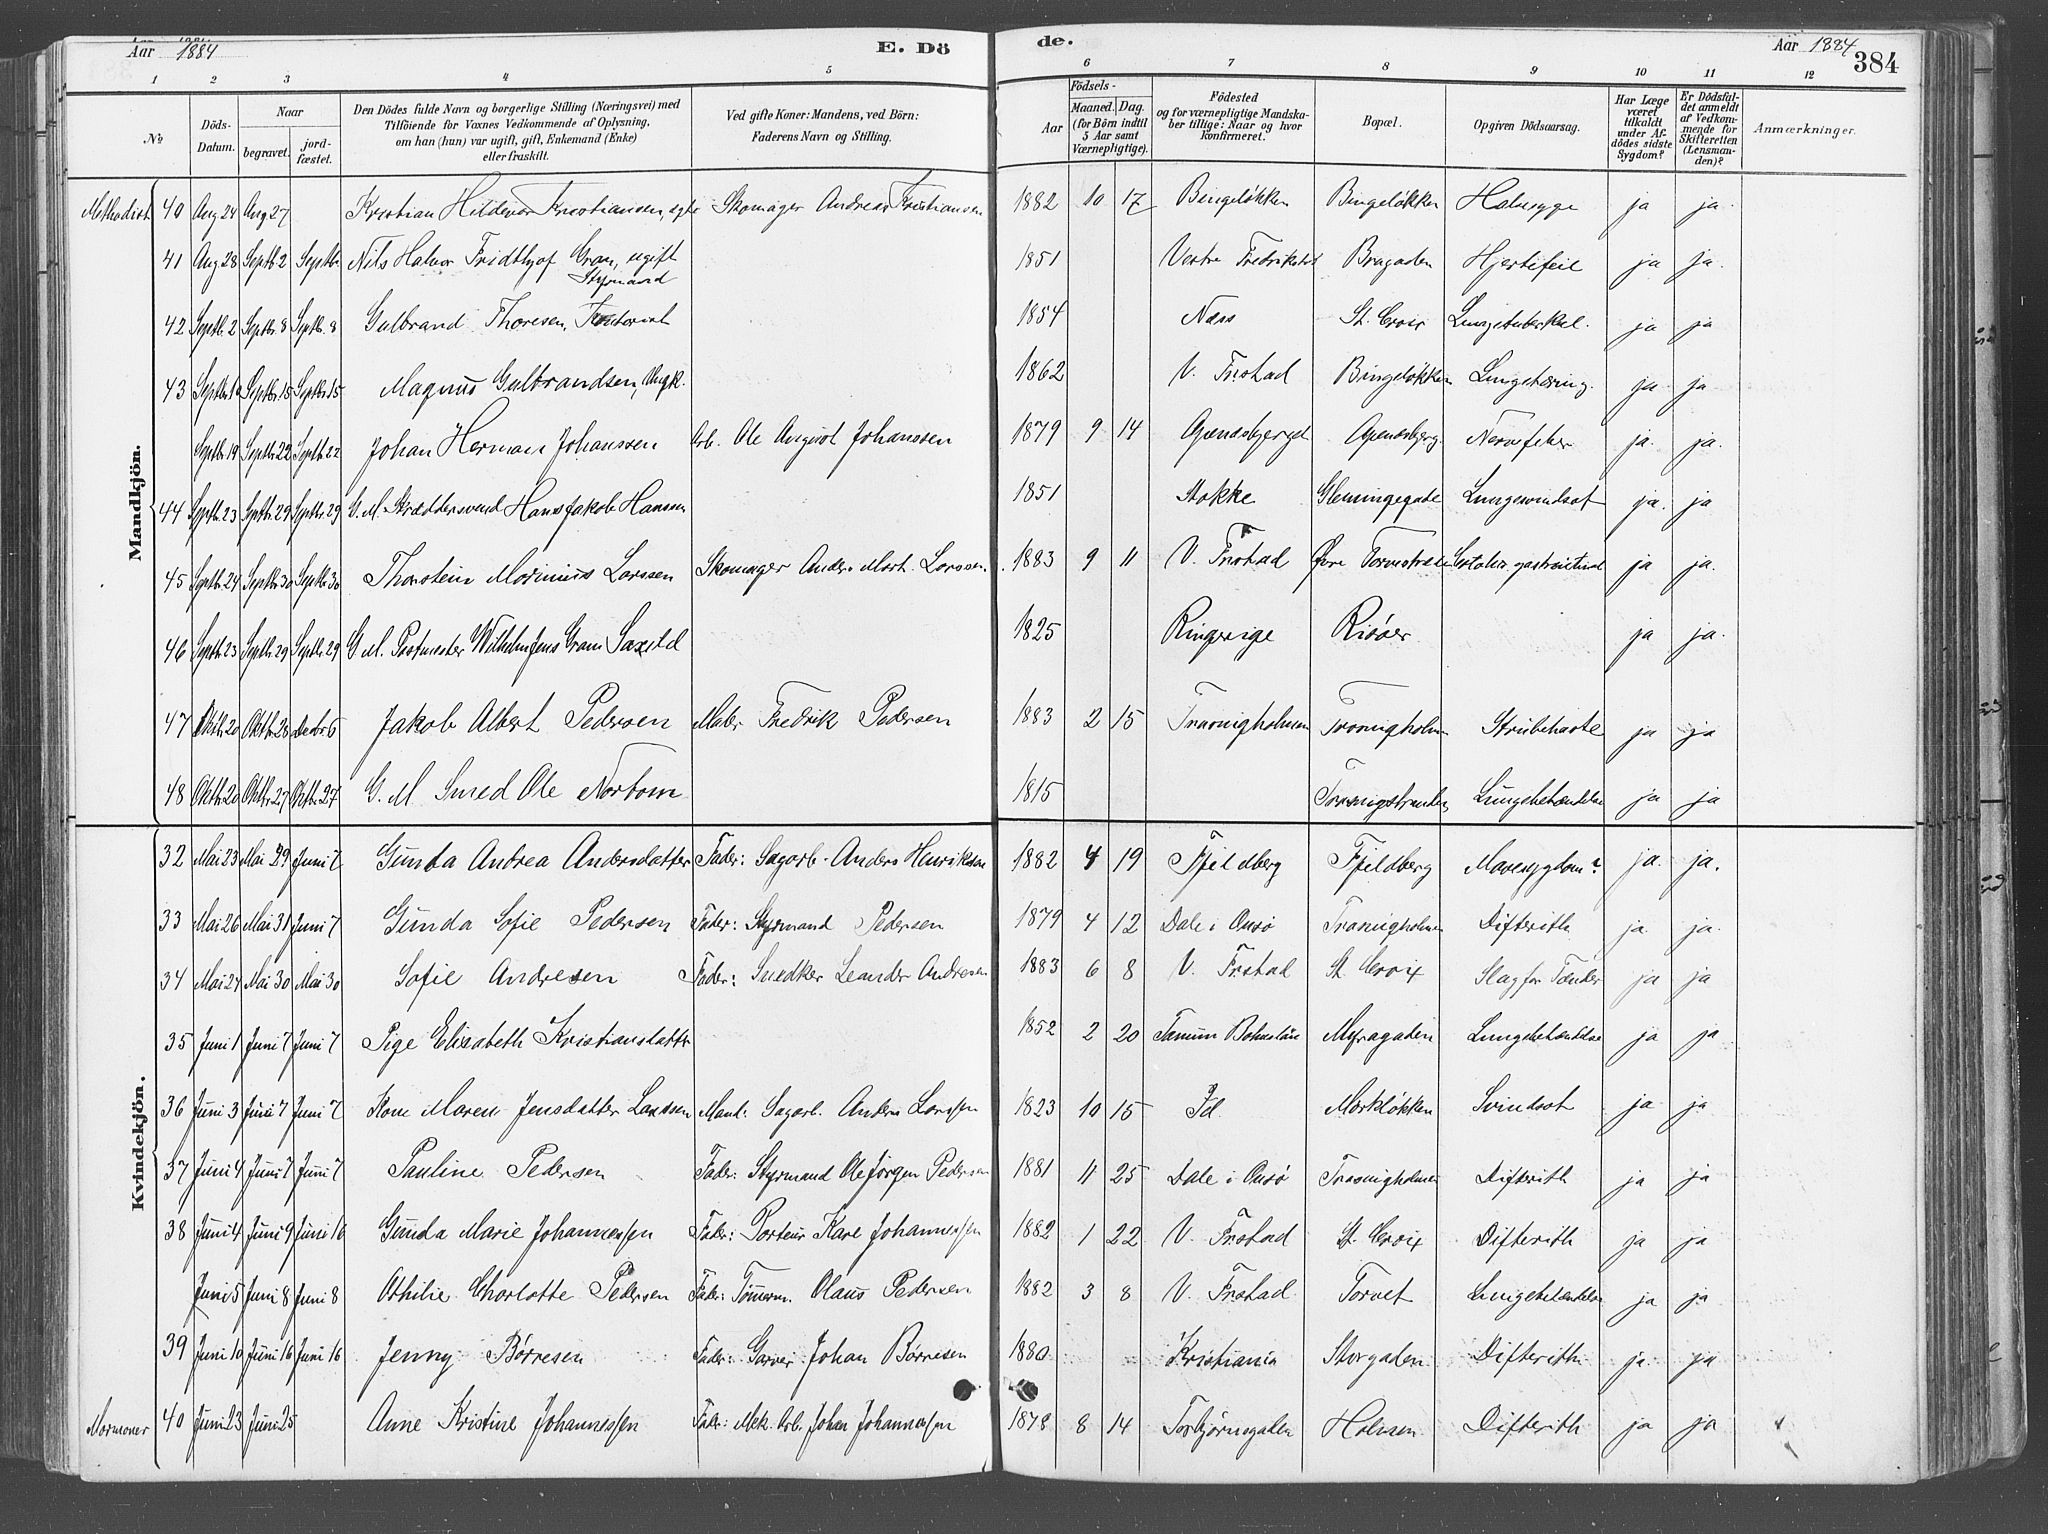 Aar 1884 E. Dö
de. Aar 1884 384
1 2 3 4 5 6 7 8 9 10 11 12
No Döds-Datum. Naar begravet. jordfæstet. Den Dödes fulde Navn og borgerlige Stilling (Næringsvei) med Tilföiende for Voxnes Vedkommende af Oplysning, om han (hun) var ugift, gift, Enkemand (Enke) eller fraskilt. Ved gifte Koner: Mandens, ved Börn: Faderens Navn og Stilling. Födsels- Aar Maaned. Dag. (for Börn indtil 5 Aar samt Værnepligtige). Födested og for værnepligtige Mandskaber tillige: Naar og hvor konfirmeret. Bopæl. Opgiven Dödsaarsag. Har Læge været tilkaldt under Afdödes sidste Sygdom? Er Dödsfaldet anmeldt af Vedkommende for Skifteretten (Lensmanden)? Anmærkninger.
Mandkjön.
Methodist 40 Aug 24 Aug 27 Kristian Hildevar Kristiansen, egte Skomager Andreas Kristiansen 1882 10 17 Bingeløkken Bingeløkken Halssyge ja ja
41 Aug 28 Septb 2 Septbr Nils Halvor Fridthjof Gram, ugift Styrmand 1851 Vestre Fredrikstad Brogaden Hjertefeil ja ja.
42 Septb. 2 Septbr 8 Septb. 8 Gulbrand Thoresen, 1854 Næss St. Croix Lungetuberkul. ja ja
43 Septbr Septbr 15 Septbr 15 Magnus Gulbrandsen, Ungk. 1862 V. Frstad Bingeløkken Lungetæring. ja ja
Septbr 19 Septbr 22 Septbr 22 Johan Herman Johanssen Arb. Ole August Johanssen 1879 9 14 Apenæsbjerget Apenæsbjerg Nervefeber ja ja.
44 Septb 23 Septbr 29 Septbr 29 G. M. Skræddersvend Hans Jakob Hanssen 1851 Stokke Glemmingegade Lungesvindsot ja ja
45 Septbr 24 Septbr 30 Septbr 30 Thorstein Marinius Larssen Skomager Anders Mart. Larssen. 1883 9 11 V. Frstad Øvre Torvestræde ja ja.
46 Septb 23 Septbr 29 Septbr 29 G. M. Postmester Wilhelm Jens Gram Saxild 1825 Ringerige Risøer ja ja.
47 Oktbr 20 Oktbr 28 Decbr 6 Jakob Albert Pedersen Maler Fredrik Pedersen 1883 2 15 Traavigholmen Traavigholm Strubehoste ja ja
48 Oktbr 20 Oktbr 27 Oktbr 27 G. M. Smed Ole Nortom 1815 Traavigstranden Lungebetændelse ja ja
Kvindekjön.
32 Mai 23 Mai 29 Juni 7 Gunda Andrea Andersdatter Fader: Sagarb. Anders Henriksen 1882 4 19 Fjeldberg Fjeldberg Mavesygdom? ja. ja.
33 Mai 26 Mai 31 Juni 7 Gunda Sofie Pedersen Fader: Styrmand Pedersen 1879 4 12 Dale i Onsø Traavigholmen Difterith ja ja.
34 Mai 27 Mai 30 Mai 30 Sofie Andresen Fader: Snedker Leander Andresen 1883 6 8 V. Frstad St. Croix Slag for Tænder ja ja
35 Juni 1 Juni 7 Juni 7 Pige Elisabeth Kristiansdatter 1852 2 20 Tanum Bohuslän Myragaden Lungebetændelse ja ja
36 Juni 3 Juni 7 Juni 7 Kone Maren Jensdatter Larssen Mand: Sagarb. Anders Larssen 1823 10 15 Id. Mørkløkken Svindsot ja ja
37 Juni 4 Juni 7 Juni 7 Pauline Pedersen Fader: Styrmand Ole Jørgen Pedersen 1881 11 25 Dale i Onsø Traavigholmen Difterith ja ja
38 Juni 4 Juni 9 Juni 16 Gunda Marie Johannessen Fader: Porteur Karl Johannessen 1882 1 22 V. Frstad St. Croix Difterith ja ja
Juni 5 Juni 8 Juni 8 Othilie Charlotte Pedersen Fader: Tømmerm. Olaus Pedersen 1882 3 8 V. Frstad Torvet Lungebetændelse ja ja
39 Juni 10 Juni 16 Juni 16 Jenny Børresen Fader: Garver Johan Børresen 1880 Kristiania Storgaden Difterith ja ja
Mormoner 40 Juni 23 Juni 25 Anne Kristine Johannessen Fader: Mek. Arb. Johan Johannessen 1878 8 14 Torbjørnsgaden Holmen Difterith ja ja